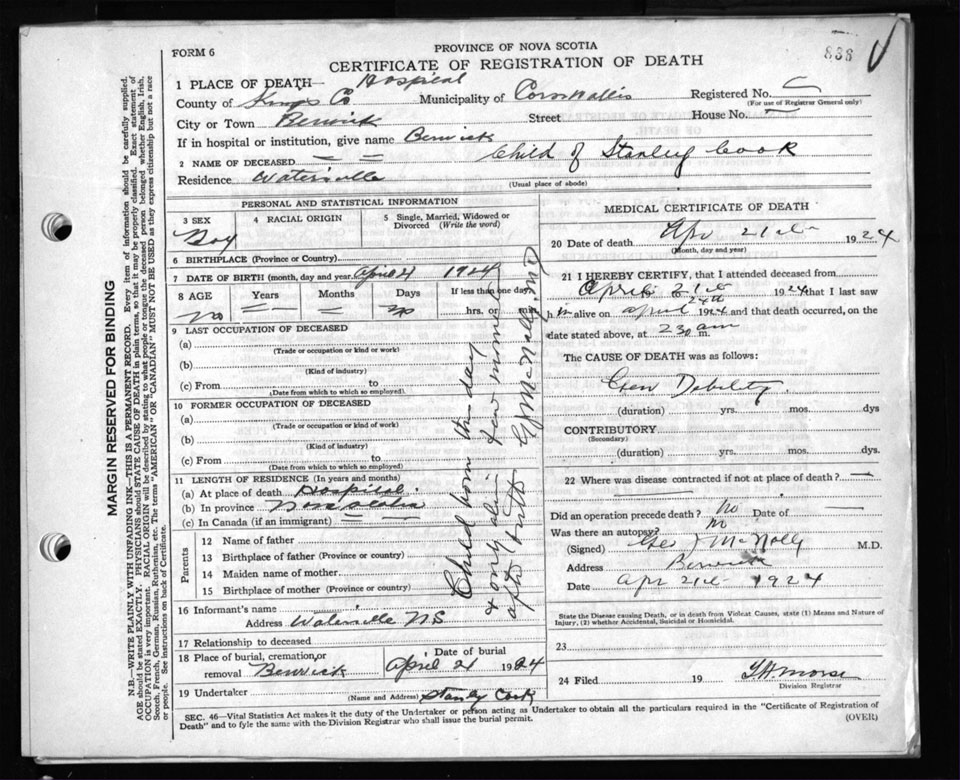 FORM 6
PROVINCE OF NOVA SCOTIA
838
CERTIFICATE OF REGISTRATION OF DEATH
1 PLACE OF DEATH— Hospital
County of Kings Co Municipality of Cornwallis Registered No.
(For use of Registrar General only)
City or Town Berwick Street House No.
If in hospital or institution, give name Berwick
2 NAME OF DECEASED Child of Stanley Cook
Residence Waterville
(Usual place of abode)
PERSONAL AND STATISTICAL INFORMATION
3 SEX 4 RACIAL ORIGIN 5 Single, Married, Widowed or Divorced (Write the word)
Boy
6 BIRTHPLACE (Province or Country)
7 DATE OF BIRTH (month, day and year) April 21 1924
8 AGE Years Months Days If less than one day
no no hrs. or min.
9 LAST OCCUPATION OF DECEASED
(a)
(Trade or occupation or kind or work)
(b)
(Kind of industry)
(c) From to
(Date from which to which so employed)
10 FORMER OCCUPATION OF DECEASED
(a)
(Trade or occupation or kind of work)
(b)
(Kind of industry)
(c) From to
(Date from which to which so employed)
11 LENGTH OF RESIDENCE (In years and months)
(a) At place of death Hospital
(b) In province Nova Scotia
(c) In Canada (if an immigrant)
Parents
12 Name of father
13 Birthplace of father (Province or country)
14 Maiden name of mother
15 Birthplace of mother (Province or country)
16 Informant's name
Address Waterville N S
17 Relationship to deceased
18 Place of burial, cremation, or removal Berwick Date of burial April 21 1924
19 Undertaker Stanly Cook
(Name and Address)
Child born this day
& only alive few minutes
after birth G J McNally MD
MEDICAL CERTIFICATE OF DEATH
20 Date of death Apr 21st 1924
(Month, day and year)
21 I HEREBY CERTIFY, that I attended deceased from
April 21st 1924 that I last saw
h im alive on April 24th 1924 and that death occurred, on the
date stated above, at 2 30 am m.
The CAUSE OF DEATH was as follows:
Gen Debility
(duration) yrs. mos. dys
CONTRIBUTORY
(Secondary)
(duration) yrs. mos. dys.
22 Where was disease contracted if not at place of death?
Did an operation precede death? No Date of
Was there an autopsy? no
(Signed) Geo J McNally M.D.
Address Berwick
Date Apr 21st 1924
State the Disease causing Death, or in death from Violent Causes, state (1) Means and Nature of
Injury, (2) whether Accidental, Suicidal or Homicidal.
23
24 Filed 19
Morse
Division Registrar
SEC. 46—Vital Statistics Act makes it the duty of the Undertaker or person acting as Undertaker to obtain all the particulars required in the "Certificate of Registration of
Death" and to fyle the same with the Division Registrar who shall issue the burial permit.
(OVER)
MARGIN RESERVED FOR BINDING
N.B.—WRITE PLAINLY WITH UNFADING INK—THIS IS A PERMANENT RECORD. Every item of information should be carefully supplied.
AGE should be stated EXACTLY. PHYSICIANS should STATE CAUSE OF DEATH in plain terms, so that it may be properly classified. Exact statement of
OCCUPATION is very important. RACIAL ORIGIN will be described by stating to what people or tongue the deceased person belonged whether English, Irish,
Scotch, French, German, Russian, Ruthenian, etc. The terms "AMERICAN" OR "CANADIAN" MUST NOT BE USED as they express citizenship but not a race
or people. See instructions on back of Certificate.